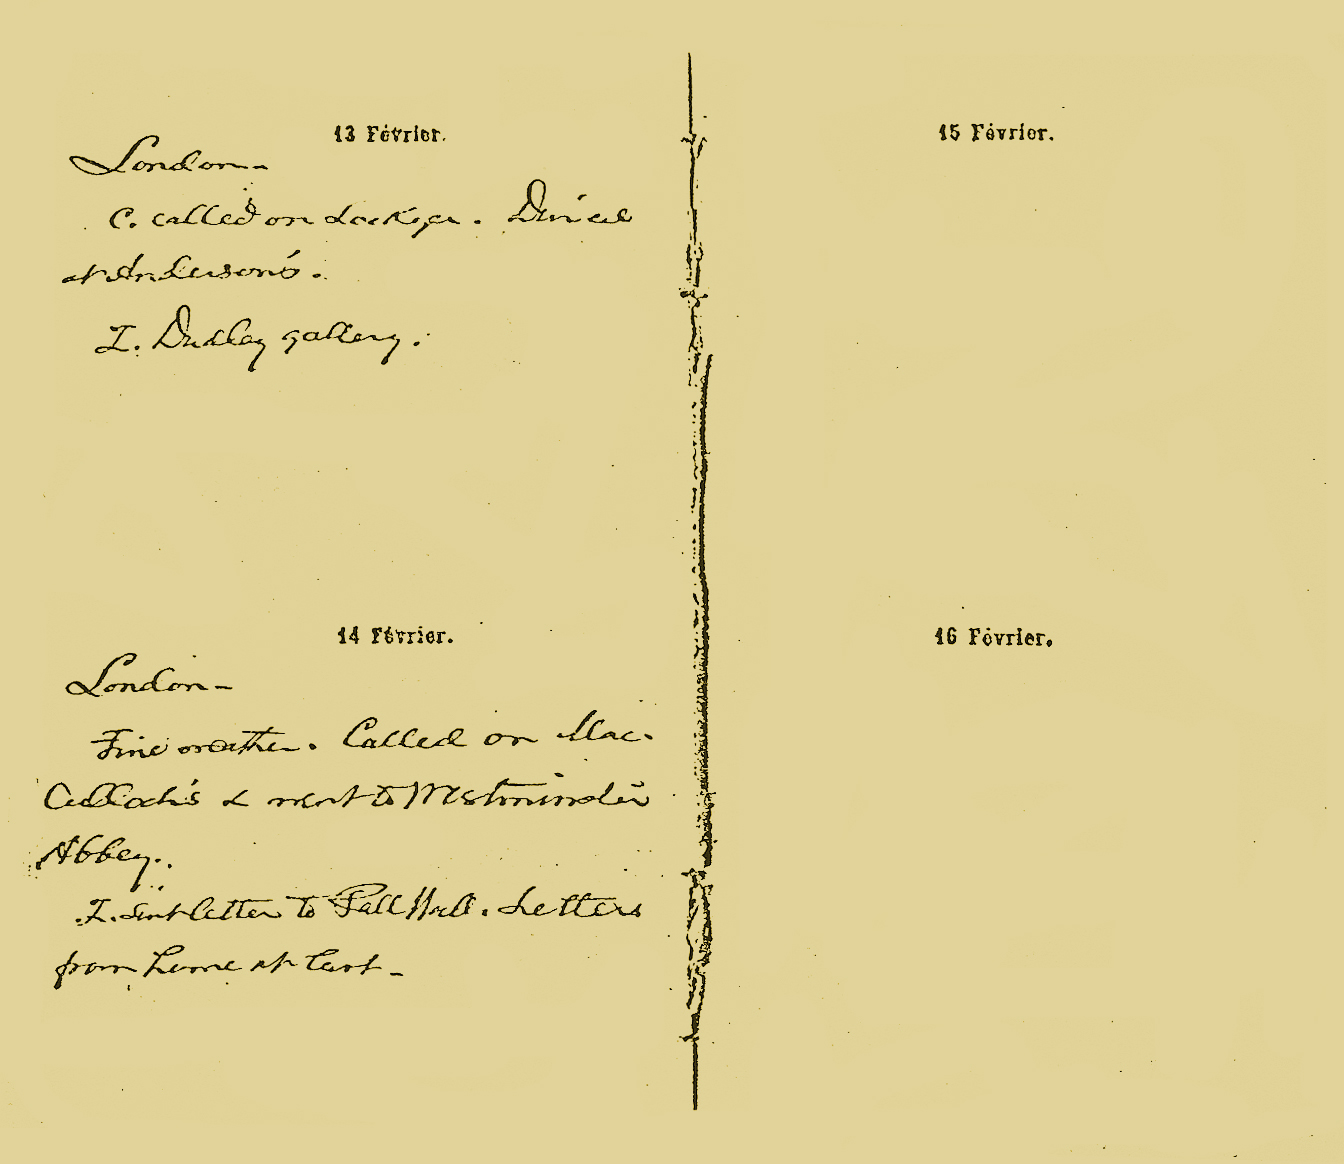 13 Février.
London-
C. called on Lockyer. Dined
at Anderson's.
I. Dudley gallery.
14 Février.
London-
Fine weather. Called on Mac-
Culloch's & went to Westminster
Abbey.
I. sent letter to Pall Mall. Letters
from home at last-
15 Février.
16 Février.